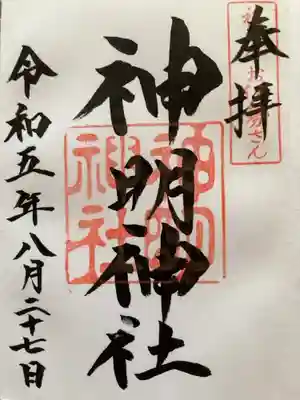 奉拝
神明神社
令和五年八月二十七日
神明
神社